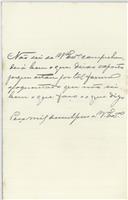 Não sei se V. Exª comprehen-
derá bem o que deixo exposto
porque estou por tal forma
apoquentado que não sei
bem o que faço e o que digo
Peço mil desculpas a V. Exª